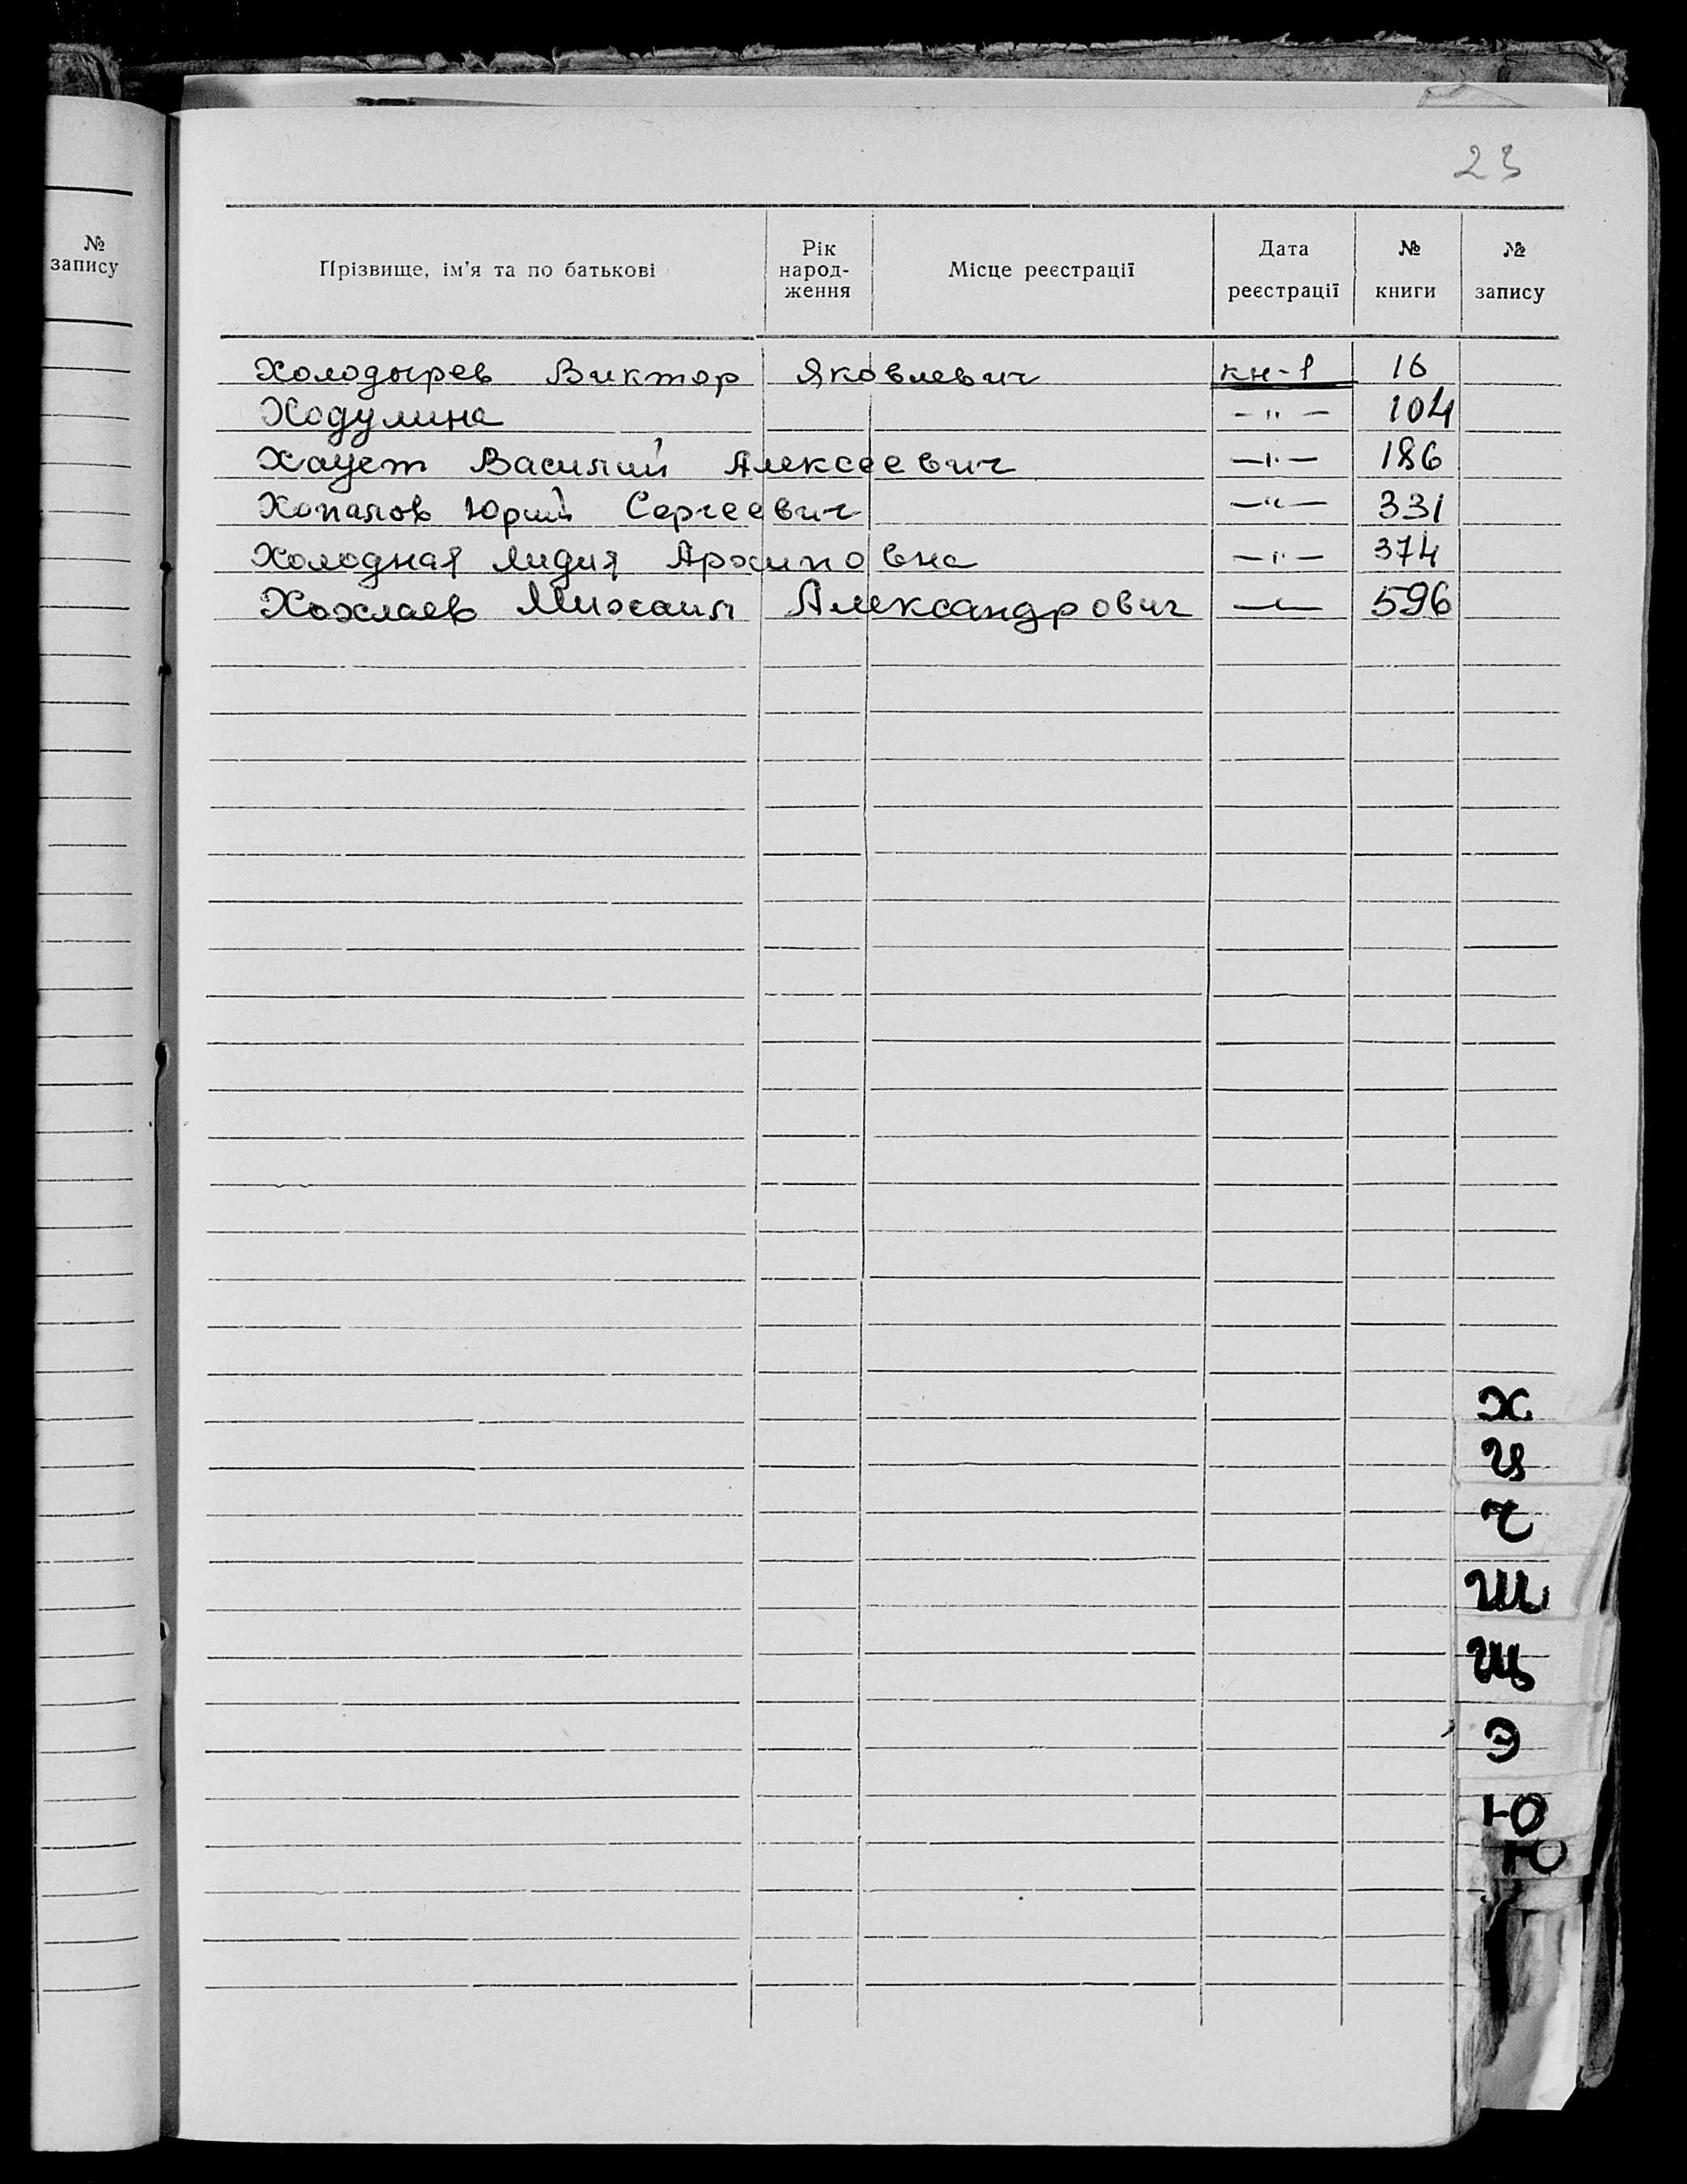 23
№ запису
Прізвище, ім'я та по батькові Рік народ-ження Місце реєстрації Дата реєстрації № книги № запису
Холодырев Виктор Яковлевич кн-1 16
Ходулина -"- 104
Хаует Василий Алексеевич -"- 186
Хопалов Юрий Сергеевич -"- 331
Холодная Лидия Архиповна -"- 374
Хохлаев Михаил Александрович -"- 596
Х
Ц
Ч
Ш
Щ
Э
Ю
Ю